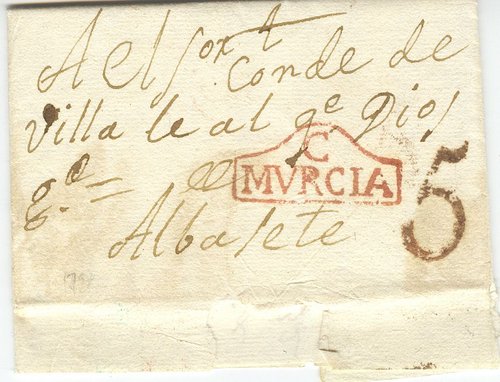 A el Sor
Conde de
Villa leal qe Dios
ge
C
MVRCIA
5
Albasete